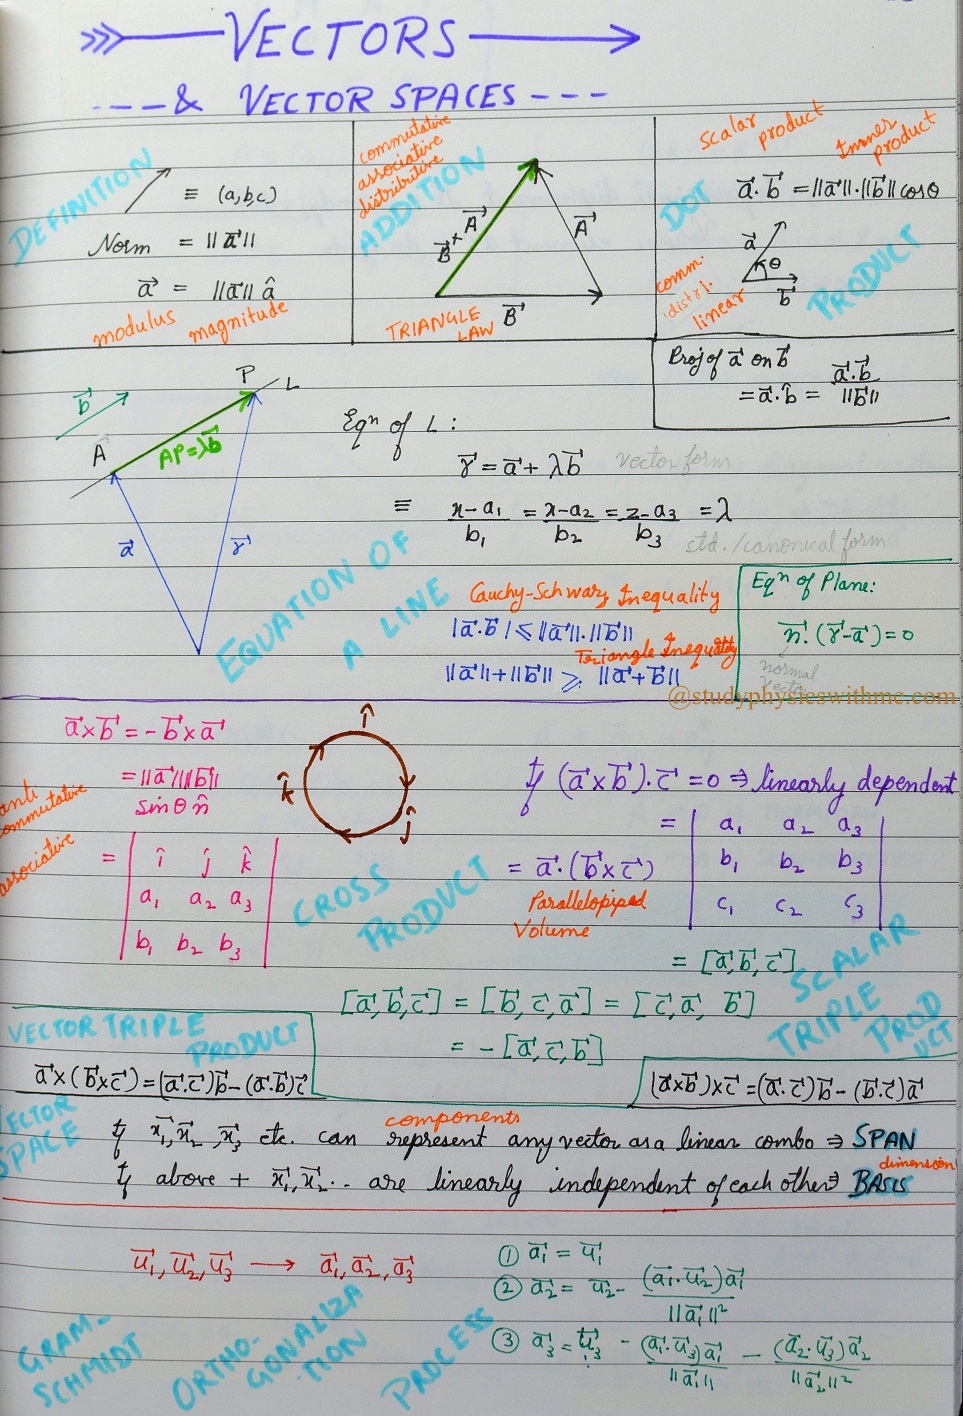 VECTORS
& VECTOR SPACES
DEFINITION
≡ (a,b,c)
Norm = ||a⃗||
a⃗ = ||a⃗|| â
modulus magnitude
commutative
associative
distributive
ADDITION
B⃗ + A⃗
A⃗
B⃗
TRIANGLE
LAW
scalar product
Inner product
DOT PRODUCT
a⃗.b⃗ = ||a⃗||.||b⃗|| cosθ
a⃗
θ
b⃗
comm.
distri.
linear
Proj of a⃗ on b⃗
= a⃗.b̂ = a⃗.b⃗ / ||b⃗||
b⃗
P
L
A
AP=λb⃗
a⃗
r⃗
Eqⁿ of L:
r⃗ = a⃗ + λb⃗ vector form
≡ x-a₁/b₁ = x-a₂/b₂ = z-a₃/b₃ = λ
std./canonical form
EQUATION OF
A LINE
Cauchy-Schwarz Inequality
|a⃗.b⃗| ≤ ||a⃗||.||b⃗||
Triangle Inequality
||a⃗||+||b⃗|| ≥ ||a⃗+b⃗||
Eqⁿ of Plane:
n⃗.(r⃗-a⃗)=0
normal
vector
@studyphysicswithme.com
a⃗×b⃗ = -b⃗×a⃗
= ||a⃗||||b⃗||
sinθ n̂
anti
commutative
associative
= | î ĵ k̂ |
| a₁ a₂ a₃ |
| b₁ b₂ b₃ |
î
k̂
ĵ
CROSS
PRODUCT
If (a⃗×b⃗).c⃗ = 0 ⇒ linearly dependent
= | a₁ a₂ a₃ |
| b₁ b₂ b₃ |
| c₁ c₂ c₃ |
= a⃗.(b⃗×c⃗)
Parallelopiped
Volume
= [a⃗,b⃗,c⃗]
SCALAR
TRIPLE
PRODUCT
[a⃗,b⃗,c⃗] = [b⃗,c⃗,a⃗] = [c⃗,a⃗,b⃗]
= -[a⃗,c⃗,b⃗]
VECTOR TRIPLE
PRODUCT
a⃗×(b⃗×c⃗)=(a⃗.c⃗)b⃗-(a⃗.b⃗)c⃗
(a⃗×b⃗)×c⃗=(a⃗.c⃗)b⃗-(b⃗.c⃗)a⃗
VECTOR
SPACE
components
If x⃗₁,x⃗₂,x⃗₃ etc. can represent any vector as a linear combo ⇒ SPAN
dimension
If above + x⃗₁,x⃗₂.. are linearly independent of each other ⇒ BASIS
u⃗₁,u⃗₂,u⃗₃ → a⃗₁,a⃗₂,a⃗₃
① a⃗₁ = u⃗₁
② a⃗₂ = u⃗₂ - (a⃗₁.u⃗₂)a⃗₁ / ||a⃗₁||²
③ a⃗₃ = u⃗₃ - (a⃗₁.u⃗₃)a⃗₁ / ||a⃗₁|| - (a⃗₂.u⃗₃)a⃗₂ / ||a⃗₂||²
GRAM-
SCHMIDT
ORTHO-
GONALIZA
TION
PROCESS